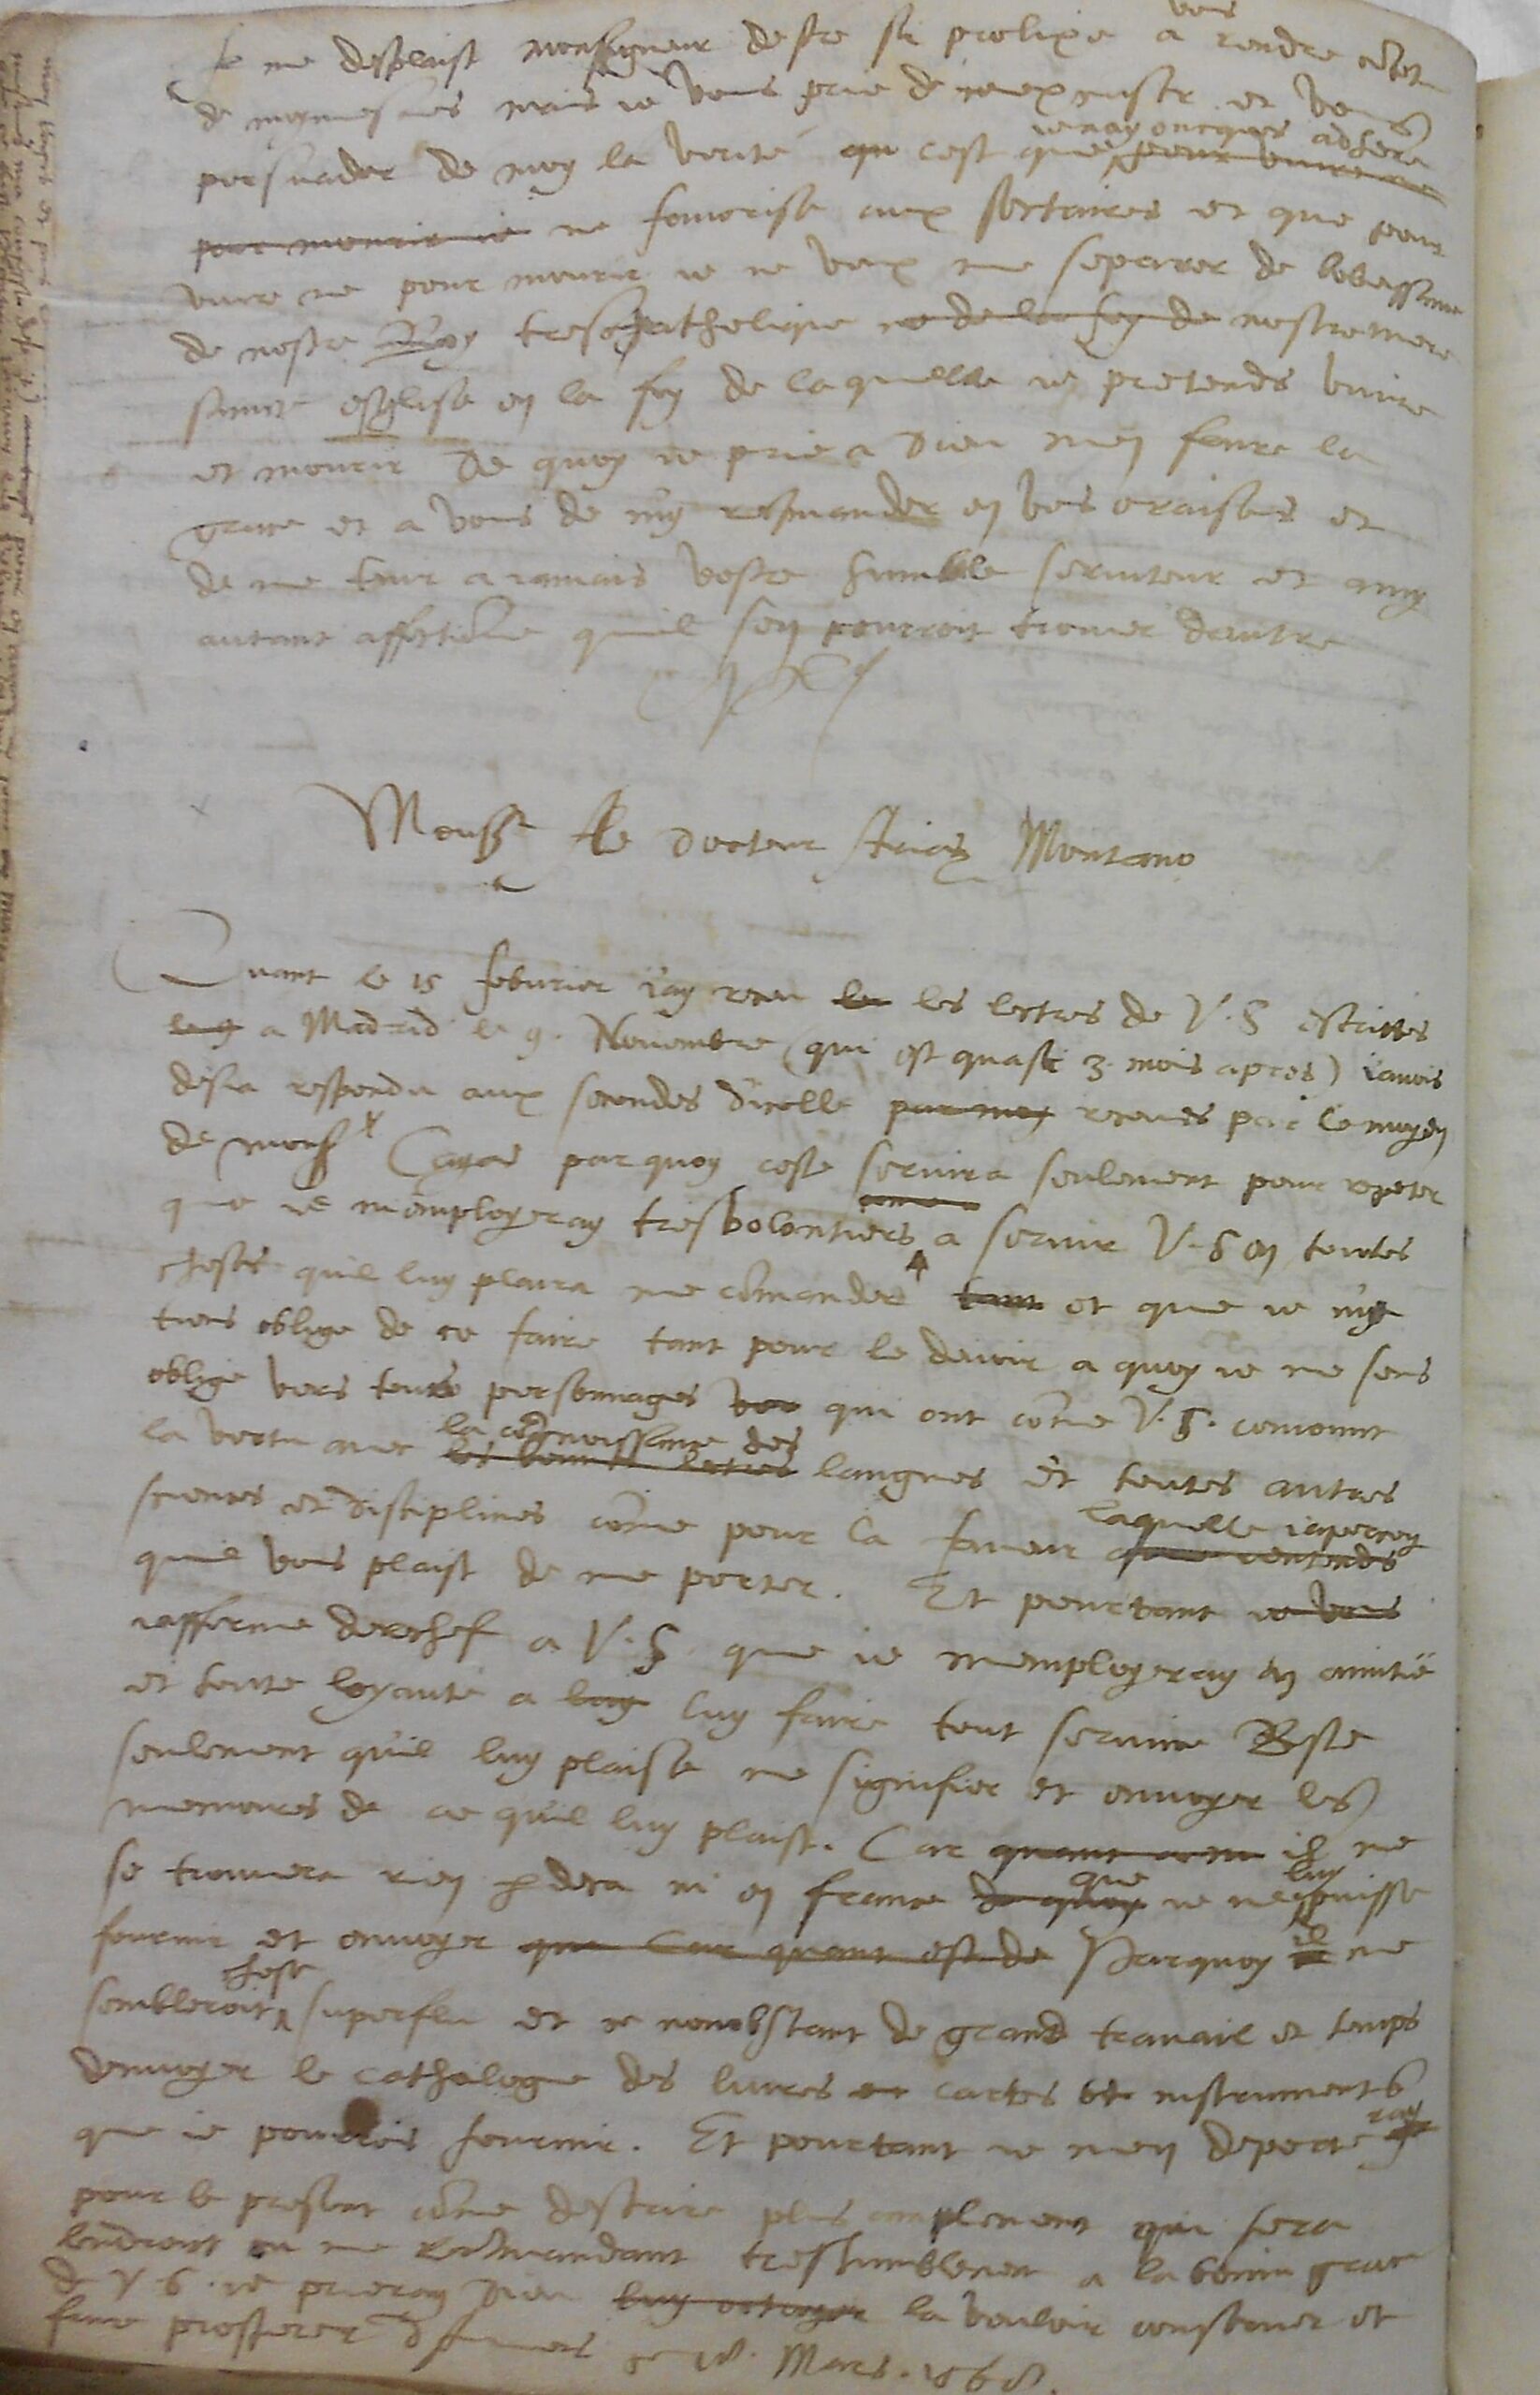 Il me desplaist monseigneur destre si prolixe a vous rendre côte
de moymesmes mais ie vous prie de mexcuser et vous
persuader de moy la verité qu cest que ie nay oncques adhere
pour mourir ie ne favorise aux sectaires et que pour
vivre ne pour mourir ie ne veux me separer de lobeissance
de nostre Roy trescatholique ne de la foy de nostre mere
saincte esglise en la foy de laquelle ie pretends vivre
et mourir De quoy ie prie a Dieu men faire la
grace et a vous de my recomander en vos oraisons et
de me tenir a iamais vostre humble serviteur et amy
autant affectiôné quil sen pourroit trouver dautre
Monsr le Docteur Arias Montano
Quant le 15 febvrier iay receu les lectres de V.S escrittes
le 9 a Madrid le 9. Novembre (qui est quasi 3. mois apres) iavois
desia respondu aux secondes dicelle par moy receues par le moyen
de monsr Cayas parquoy ceste servira seulement pour repeter
que ie memployeray tresvolontiers a servir V.S en toutes
choses quil luy plaira me cômander tant et que ie my
tiens oblige de ce faire tant pour le devoir a quoy ie me sens
oblige vers touts personages qui ont côme V.S. conioint
la vertu avec la cognoissance des les bonnes lectres langues et toutes autres
sciences et disciplines côme pour la faveur laquelle iapercoy que ientends
quil vous plaist de me porter. Et pourtant ie vous
iafferme derechef a V.S. que ie memployeray en amitie
et toute loyauté a luy luy faire tout service Reste
seulement quil luy plaise me signifier et envoyer les
memoires de ce quil luy plaist. Car quant a moy il ne
se trouvera rien p deca ni en france de quoy que ie ne luy puisse
fournir et envoyer que Car quant est de Parquoy il me
sembleroit chose superflu et ce nonobstant de grand travail et temps
denvoyer le cathalogue des livres et cartes et instruments
que ie pourrois fournir. Et pourtant ie men deporteray
pour le present côme descrire plus amplement qui sera
lendroit ou me recômandant treshumblement a la bonne grace
de V.S. ie prieray Dieu luy octroyer la vouloir conserver et
faire prosperer dAnvers ce 18. Mars. 1568.